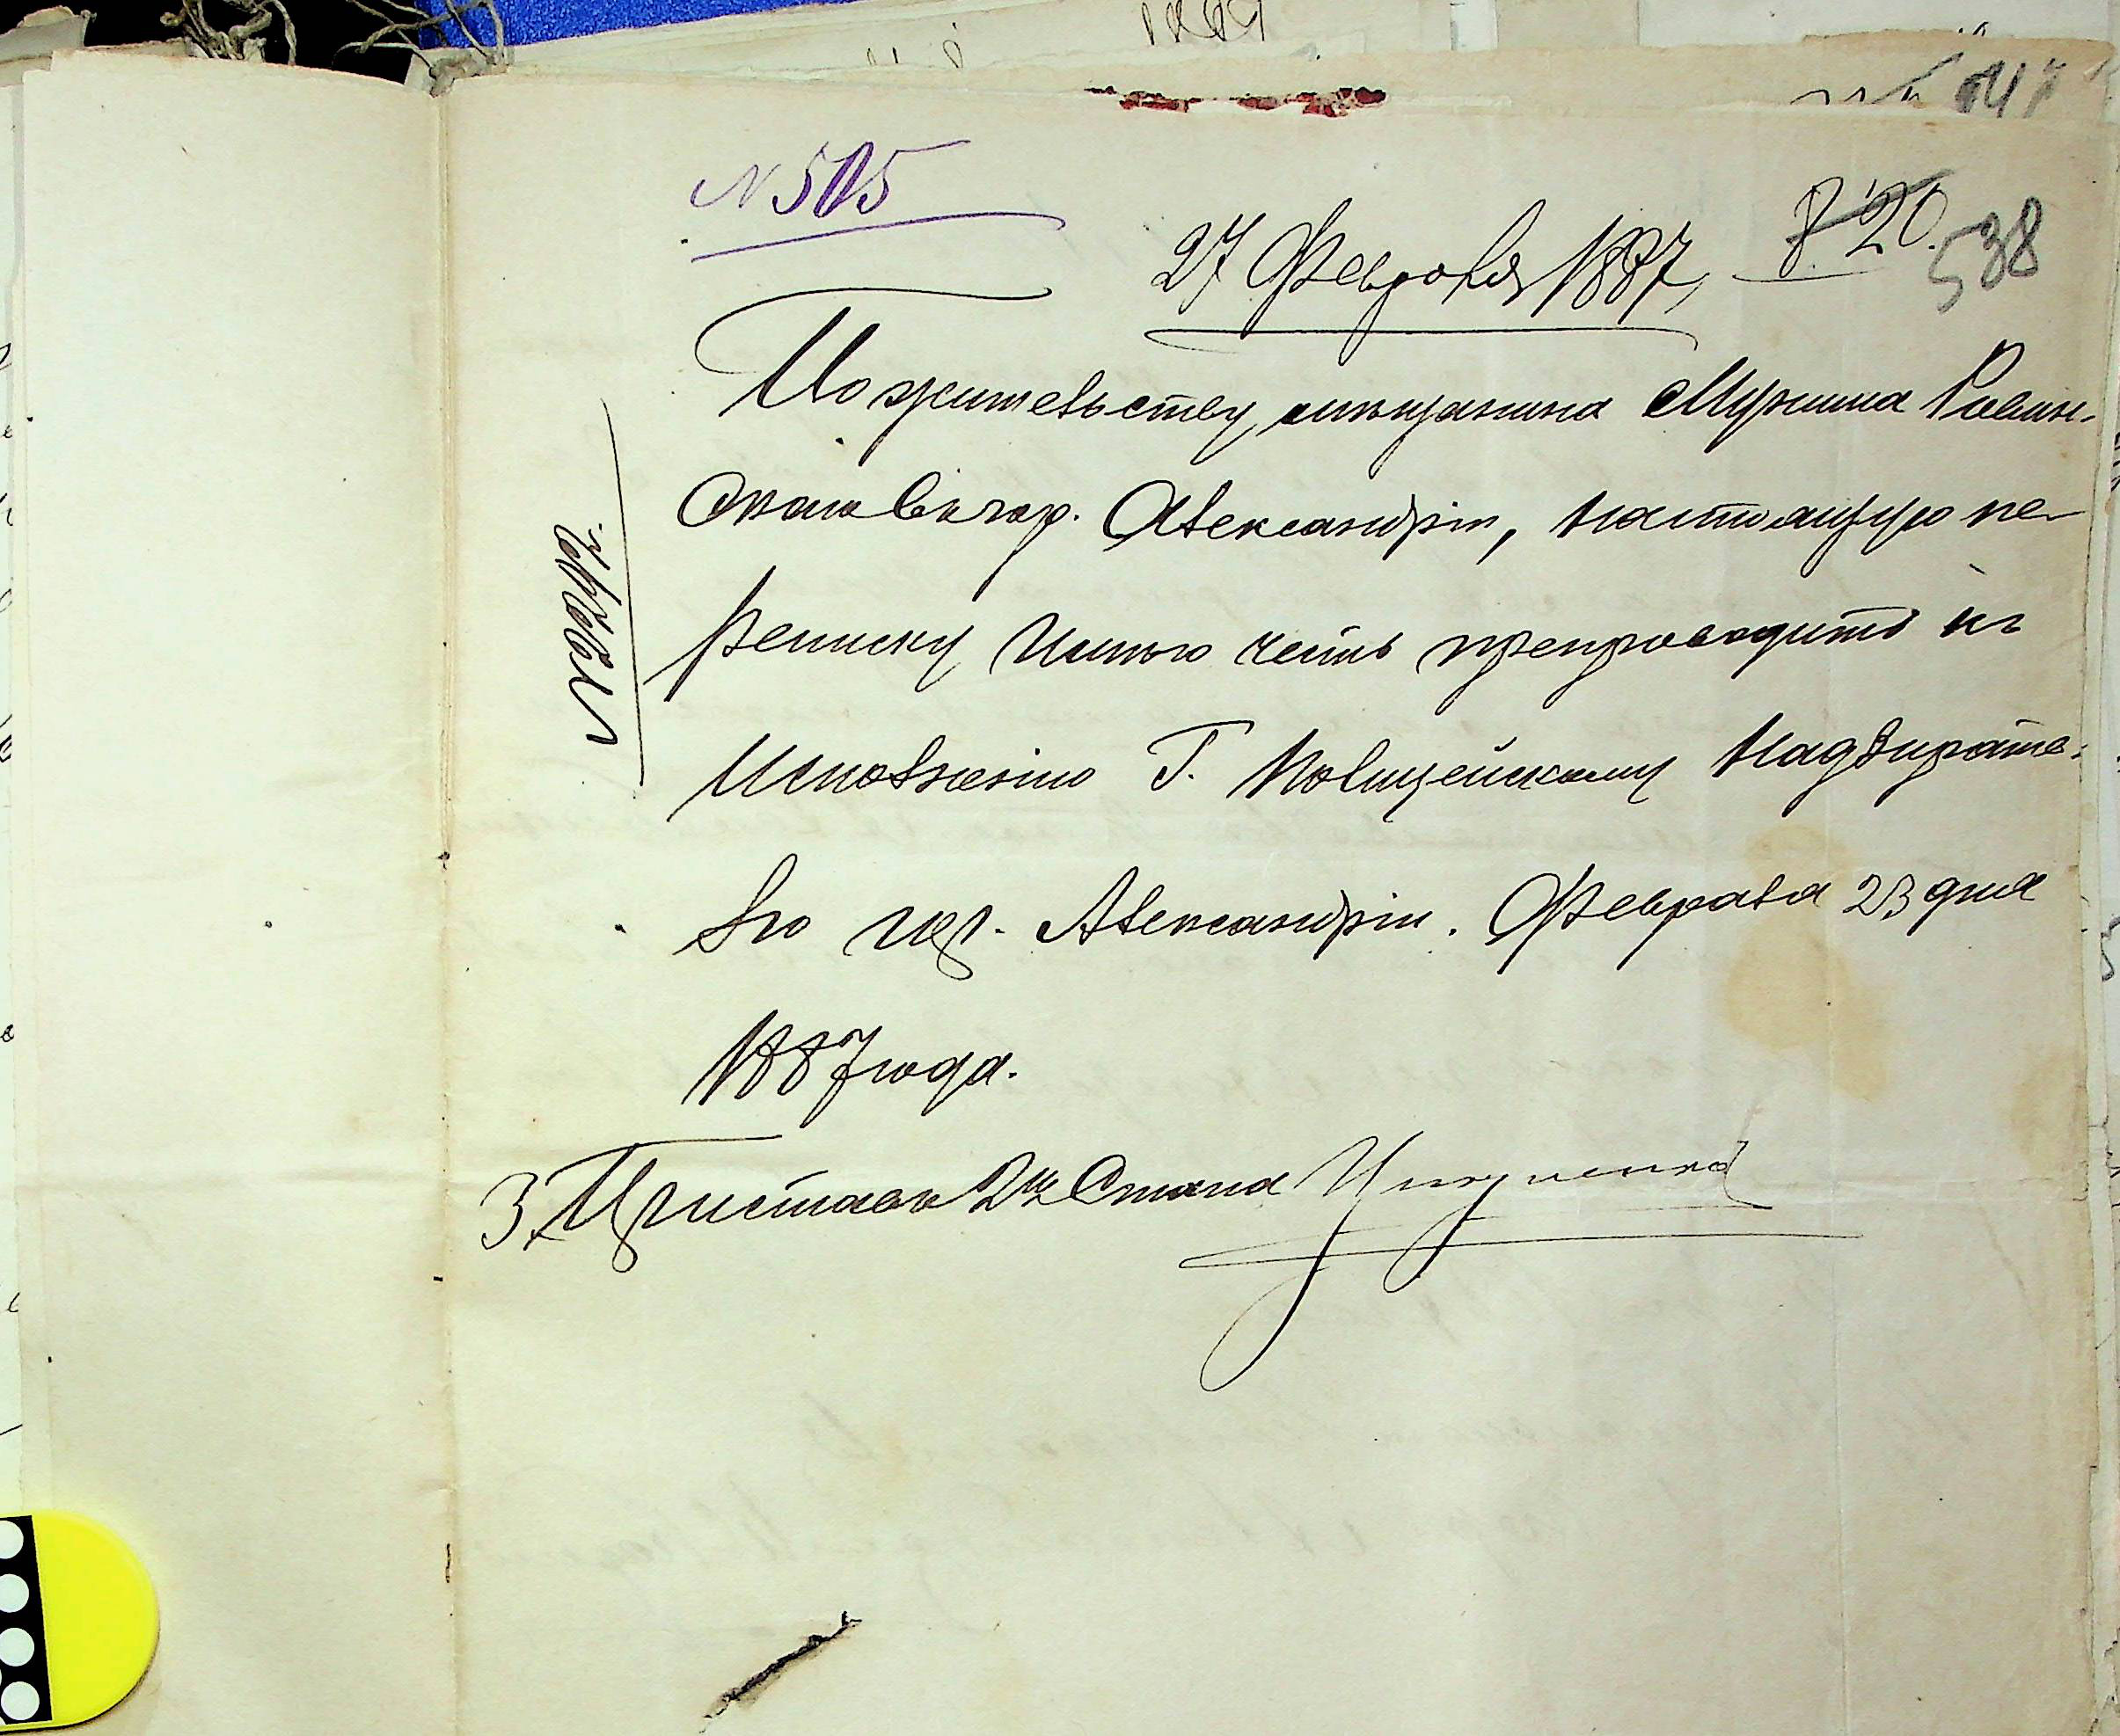 N 505
27 Февраля 1887
538
По жительству мѣщанина Муништа Ровин-
скаго въ гор. Александріи, настоящую пе-
реписку имѣю честь препроводить къ
исполненію Г. Полицейскому Надзирате-
лю гор. Александріи. Февраля 23 дня
1887 года.
З. Приставъ 2го Стана